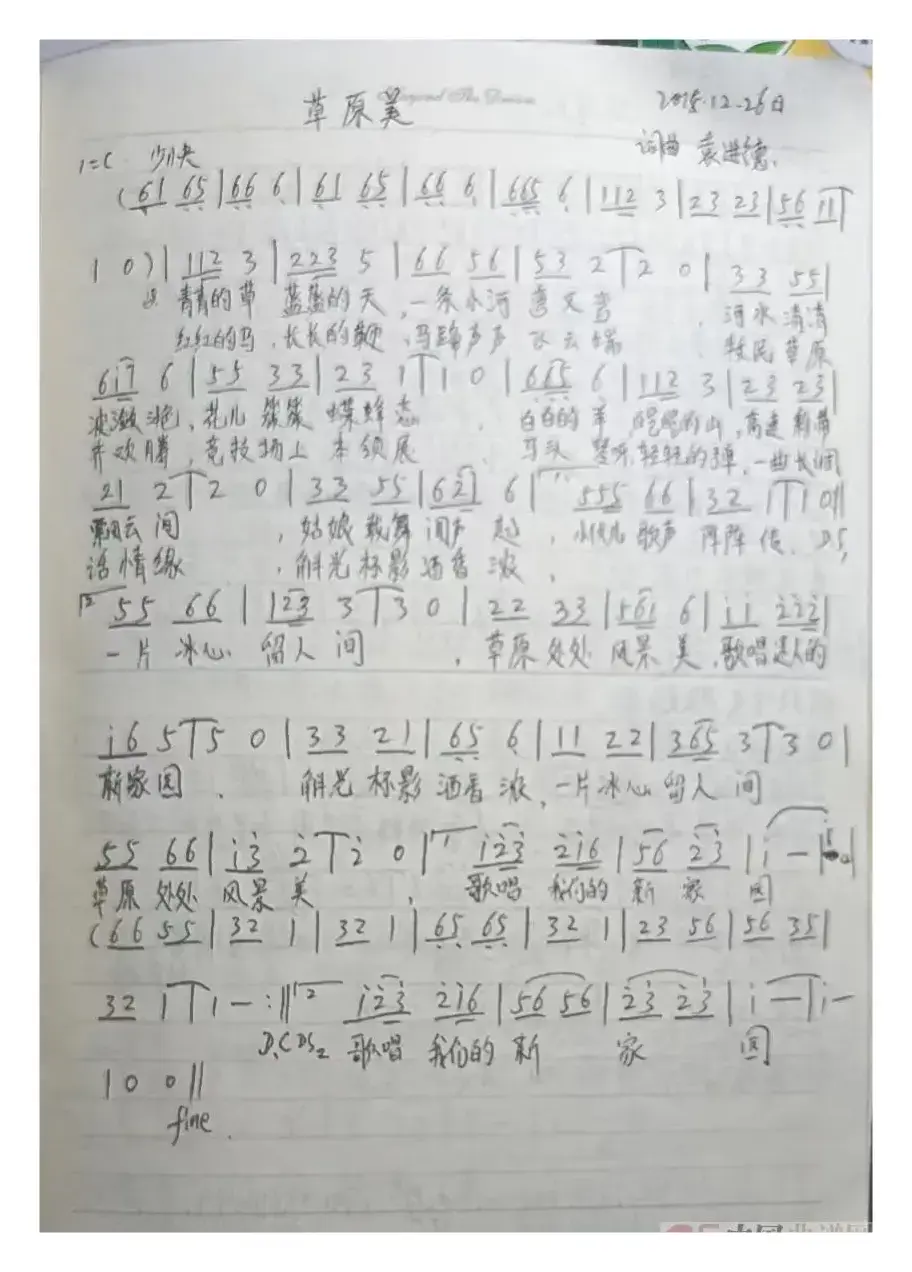 草原美
2015.12.26日
1=C 少快
词曲 袁进德.
(61 65|66 6|61 65|66 6|665 6|112 3|23 23|56 11
1 0)|112 3|223 5|66 56|53 2|2 0|33 55|
青青的草 蓝蓝的天,一条小河 弯又弯 , 河水清清
红红的马,长长的鞭,马蹄声声 飞云端 牧民草原
617 6|55 33|23 1|1 0|665 6|112 3|23 23|
波潋滟,花儿 簇簇 蝶蜂恋 , 白白的羊, 的山,高速
齐欢腾,竞技场上 本领展 , 马头 琴呀,轻轻的弹,一曲长调
21 2|2 0|33 55|621 6|1 555 66|32 1|1 0||
云间 ,姑娘载舞 闻声起 , 歌声 阵阵传. D.S,
话情缘 ,觥光杯影 洒香浓 ,
2 55 66|123 3|3 0|22 33|561 6|i i i i i|
一片 冰心 留人间 ,草原处处 风景美,歌唱 人的
i6 5|5 0|33 21|65 6|11 22|365 3|3 0|
新家园 . 觥光杯影 洒香浓,一片冰心 留人间
55 66|i3 2|2 0|1 i23 2i6|56 23|i -|
草原处处 风景美 , 歌唱 我们的 新 家 园
(66 55|32 1|32 1|65 65|32 1|23 56|56 35|
32 1|1 -:||2 i23 2i6|56 56|23 23|i -|i -
D.C DS2 歌唱 我们的 新 家 园
|0 0||
fine.